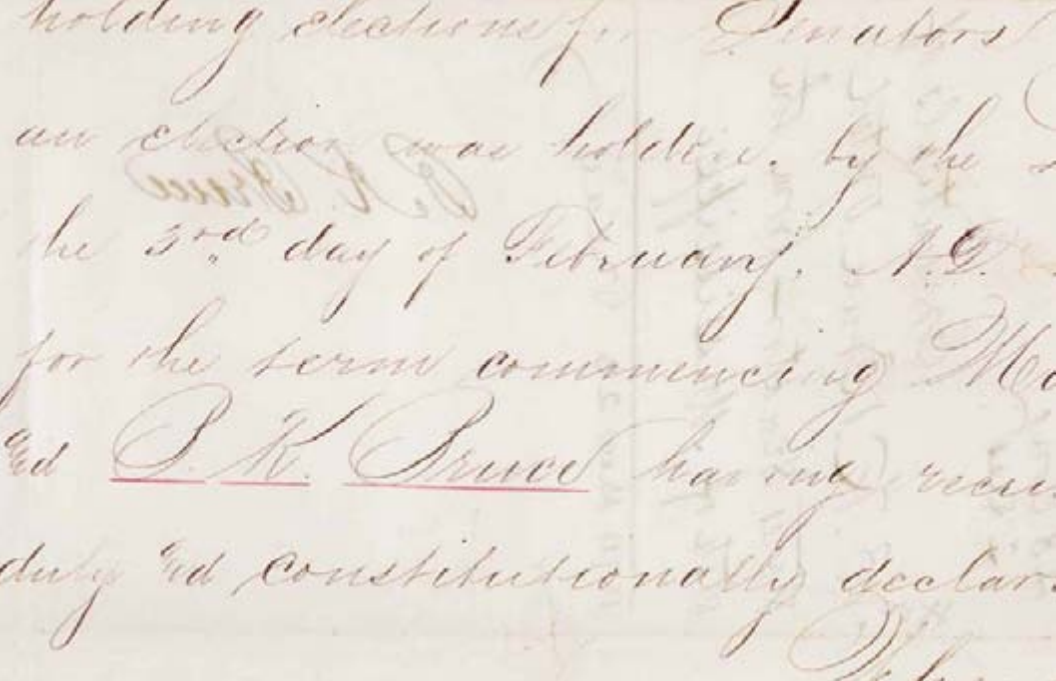 holding elections for Senators
an election was holden, by the
the 3rd day of February, A.D.
for the term commencing
&d B. K. Bruce having
duly &d constitutionally